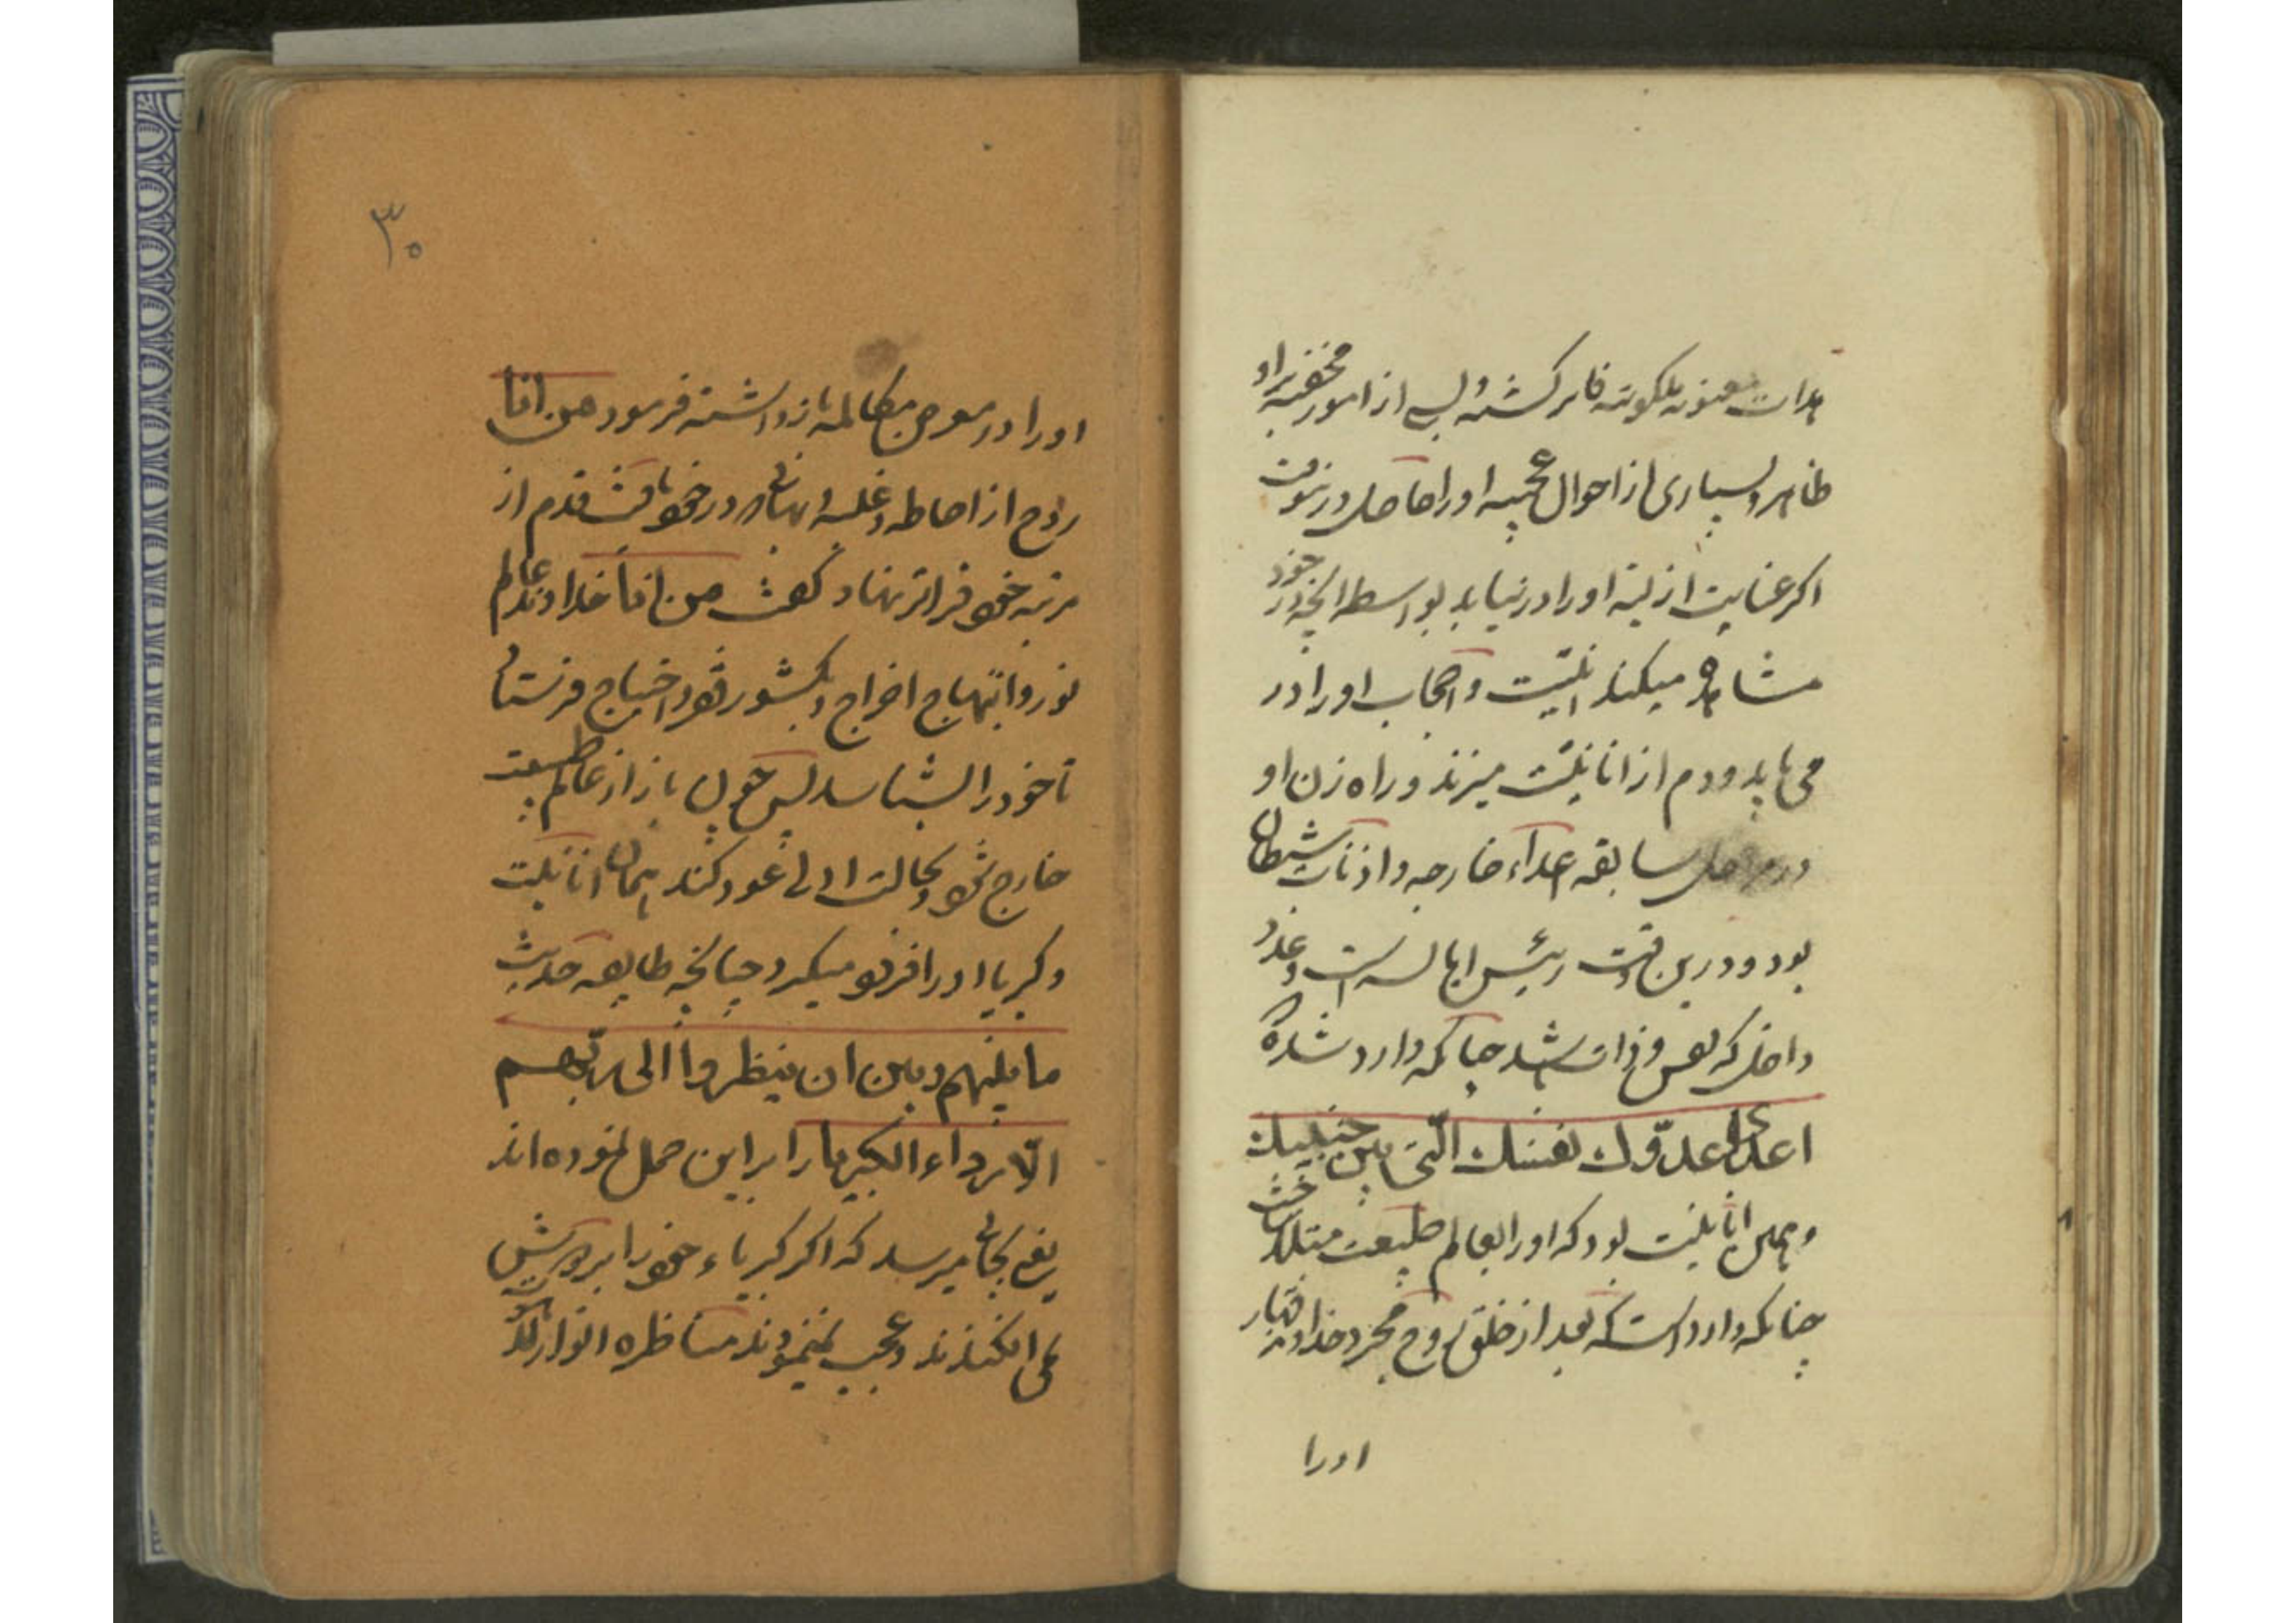 مدات معنویه ملکوتیه فائز گشته و بسی از امور مخفیه بر او
ظاهر و بسیاری از احوال عجیبه او را حاصل در نیوقت
اگر عنایت ازلیه او را در نیابد بواسطه آنچه در خود
مشاهده میکند انانیت و اعجاب او را در
می یابد و دم از انانیت میزند و راه زن او
در مراحل سابقه اعداء خارجه و اذناب شیطان
بود و درین وقت رئیس ابالسه است و عدو
داخلی که نفس و ذات باشد چنانکه وارد شده
اعدی عدوّك نفسك الّتی بین جنبیك
و همین انانیت بود که اورا بعالم طبیعت مبتلا ساخت
چنانکه وارد است که بعد از خلق روح مجرد خداوند قهار
اورا
۳۰
او را در معرض مکالمه باز داشته فرمود من انا
روح از احاطه و غلبه و بهائی که در خود یافت قدم از
مرتبه خود فراتر نهاد و گفت من انا خداوند از عالم
نور و ابتهاج اخراج و بکشور فقر و احتیاج فرستاد
تا خود را بشناسد پس چون باز از عالم طبیعت
خارج شود و بحالت اولی عود کند همان انانیت
و کبریا او را فرو میگیرد چنانچه طایفه حدیث
ما بینهم و بین ان ینظروا الی ربّهم
الّا رداء الکبریا را بر این حمل نموده اند
یعنی بجائی میرسد که اگر کبریاء خود را بر دوش
نمی افکندند و عجب نمینمودند مناظره انوار